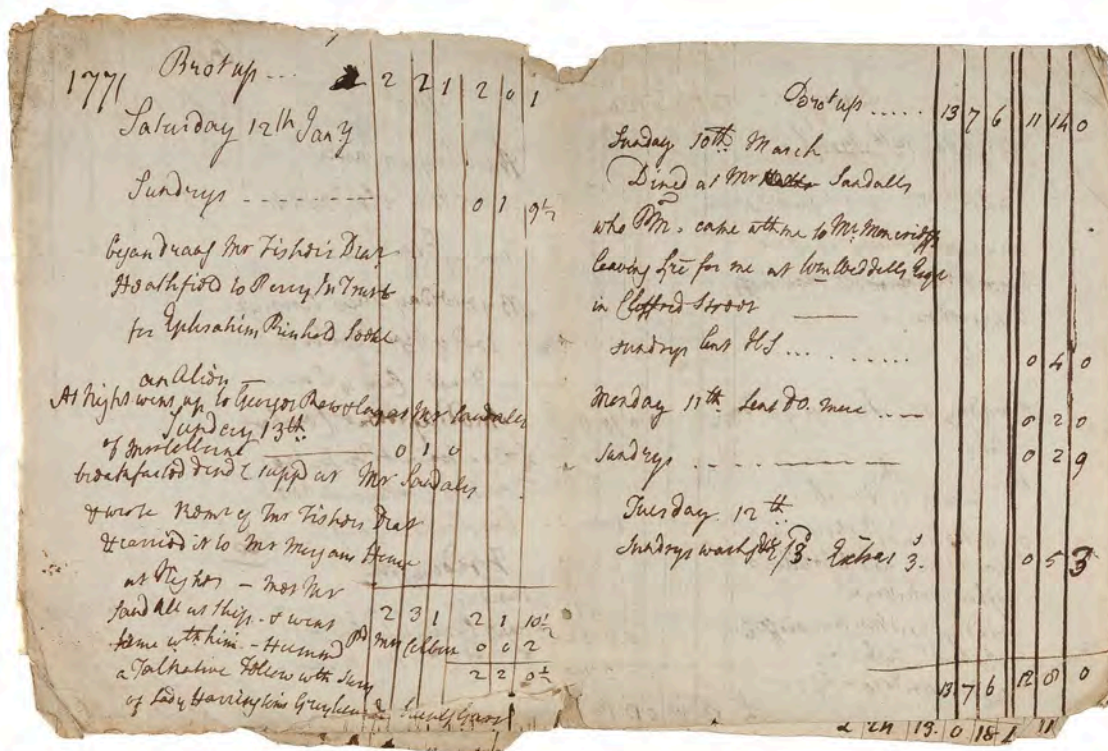 1771 Brot up ... 2 2 1 2 0 1
Saturday 12th Jany
Sundrys - - - - - - - - 0 1 9½
began draug Mr Fishers Draft
Heathfield to Percy In Trust
for Ephrahim Rinhold
an Alien —
At Night went up to George at Mr Sandalls
Sunday 13th
of 0 1 0
breakfasted dind & supp'd at Mr Sandalls
& wrote Remr of Mr Fishers Draft
& carried it to Mr Morgans House
at Night — met Mr
Sandall as this & went 2 3 1 2 1 10½
home wth him — Pd Mrs 0 0 2
a Talkative Fellow wth
2 2 0½
of Lady Harringtons
Brot up ..... 13 7 6 11 14 0
Sunday 10th March
Dined at Mr Sandalls
who PM. came wth me to Mr Moncrieff
leaving for me at Wm Weddells Esqr
in Clifford Street ———
sundrys lent HS ... . . . . . . 0 4 0
Monday 11th lent Do. more .... 0 2 0
Sundrys . . . . . 0 2 9
Tuesday 12th
Sundrys Extras 3. 0 5 3
13 7 6 12 8 0